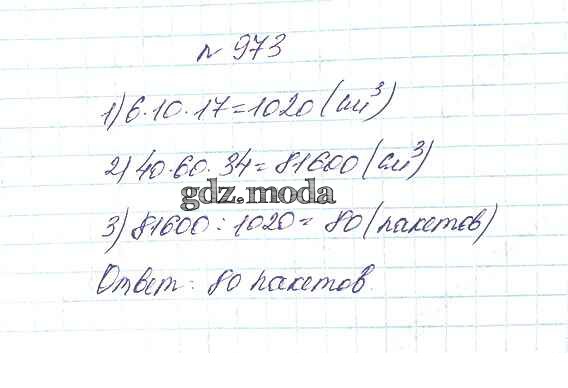 № 973
1) 6·10·17=1020 (см³)
2) 40·60·34=81600 (см³)
gdz.moda
3) 81600:1020=80 (пакетов)
Ответ: 80 пакетов.